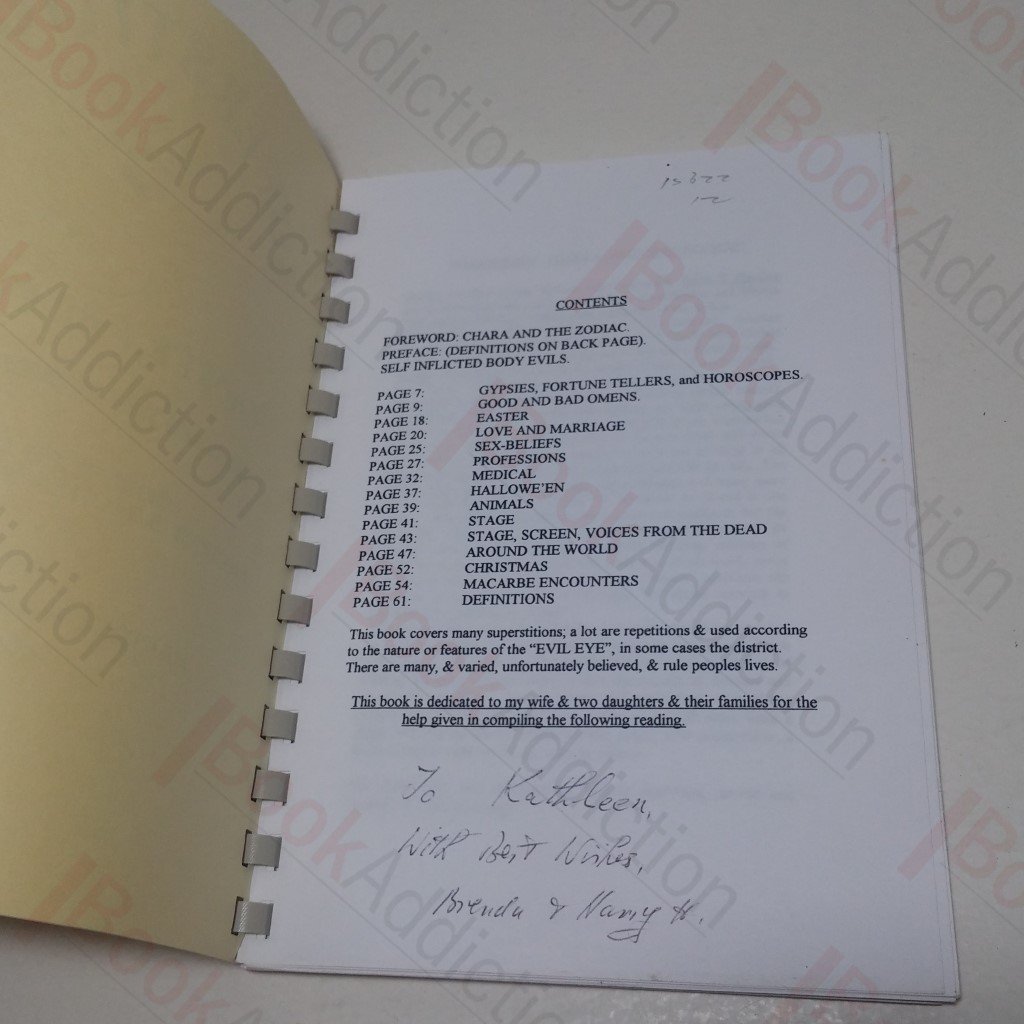 CONTENTS
FOREWORD: CHARA AND THE ZODIAC.
PREFACE: (DEFINITIONS ON BACK PAGE).
SELF INFLICTED BODY EVILS.
PAGE 7: GYPSIES, FORTUNE TELLERS, and HOROSCOPES.
PAGE 9: GOOD AND BAD OMENS.
PAGE 18: EASTER
PAGE 20: LOVE AND MARRIAGE
PAGE 25: SEX-BELIEFS
PAGE 27: PROFESSIONS
PAGE 32: MEDICAL
PAGE 37: HALLOWE'EN
PAGE 39: ANIMALS
PAGE 41: STAGE
PAGE 43: STAGE, SCREEN, VOICES FROM THE DEAD
PAGE 47: AROUND THE WORLD
PAGE 52: CHRISTMAS
PAGE 54: MACARBE ENCOUNTERS
PAGE 61: DEFINITIONS
This book covers many superstitions; a lot are repetitions & used according
to the nature or features of the “EVIL EYE”, in some cases the district.
There are many, & varied, unfortunately believed, & rule peoples lives.
This book is dedicated to my wife & two daughters & their families for the
help given in compiling the following reading.
To Kathleen,
With Best Wishes,
Brenda &
BookAddiction